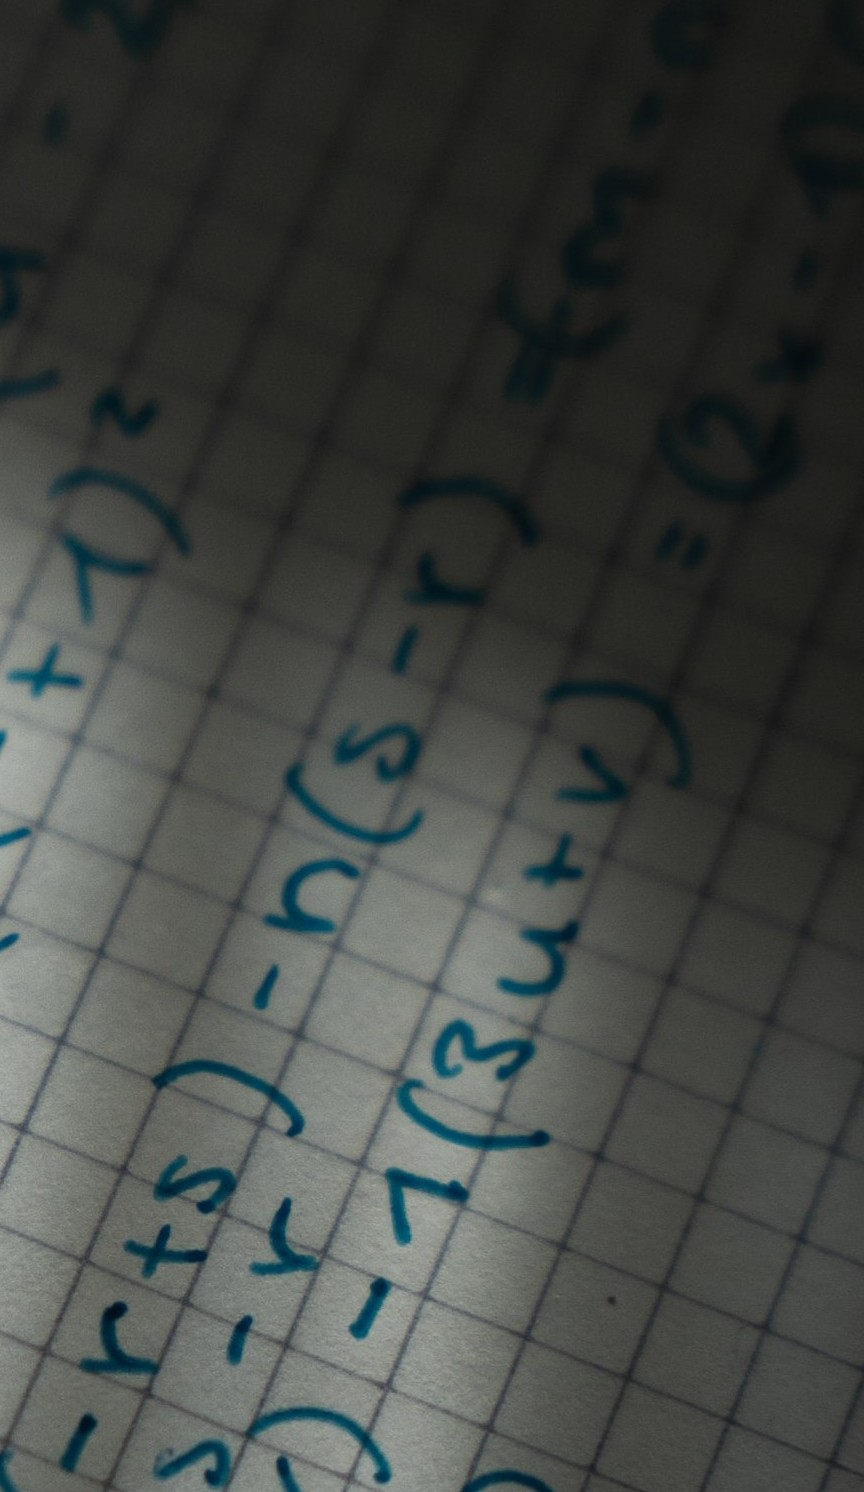 +1)²
-r+s) -n(s-r) =(m-n
s -r
) -1(3u+v) =(2x-1)
)